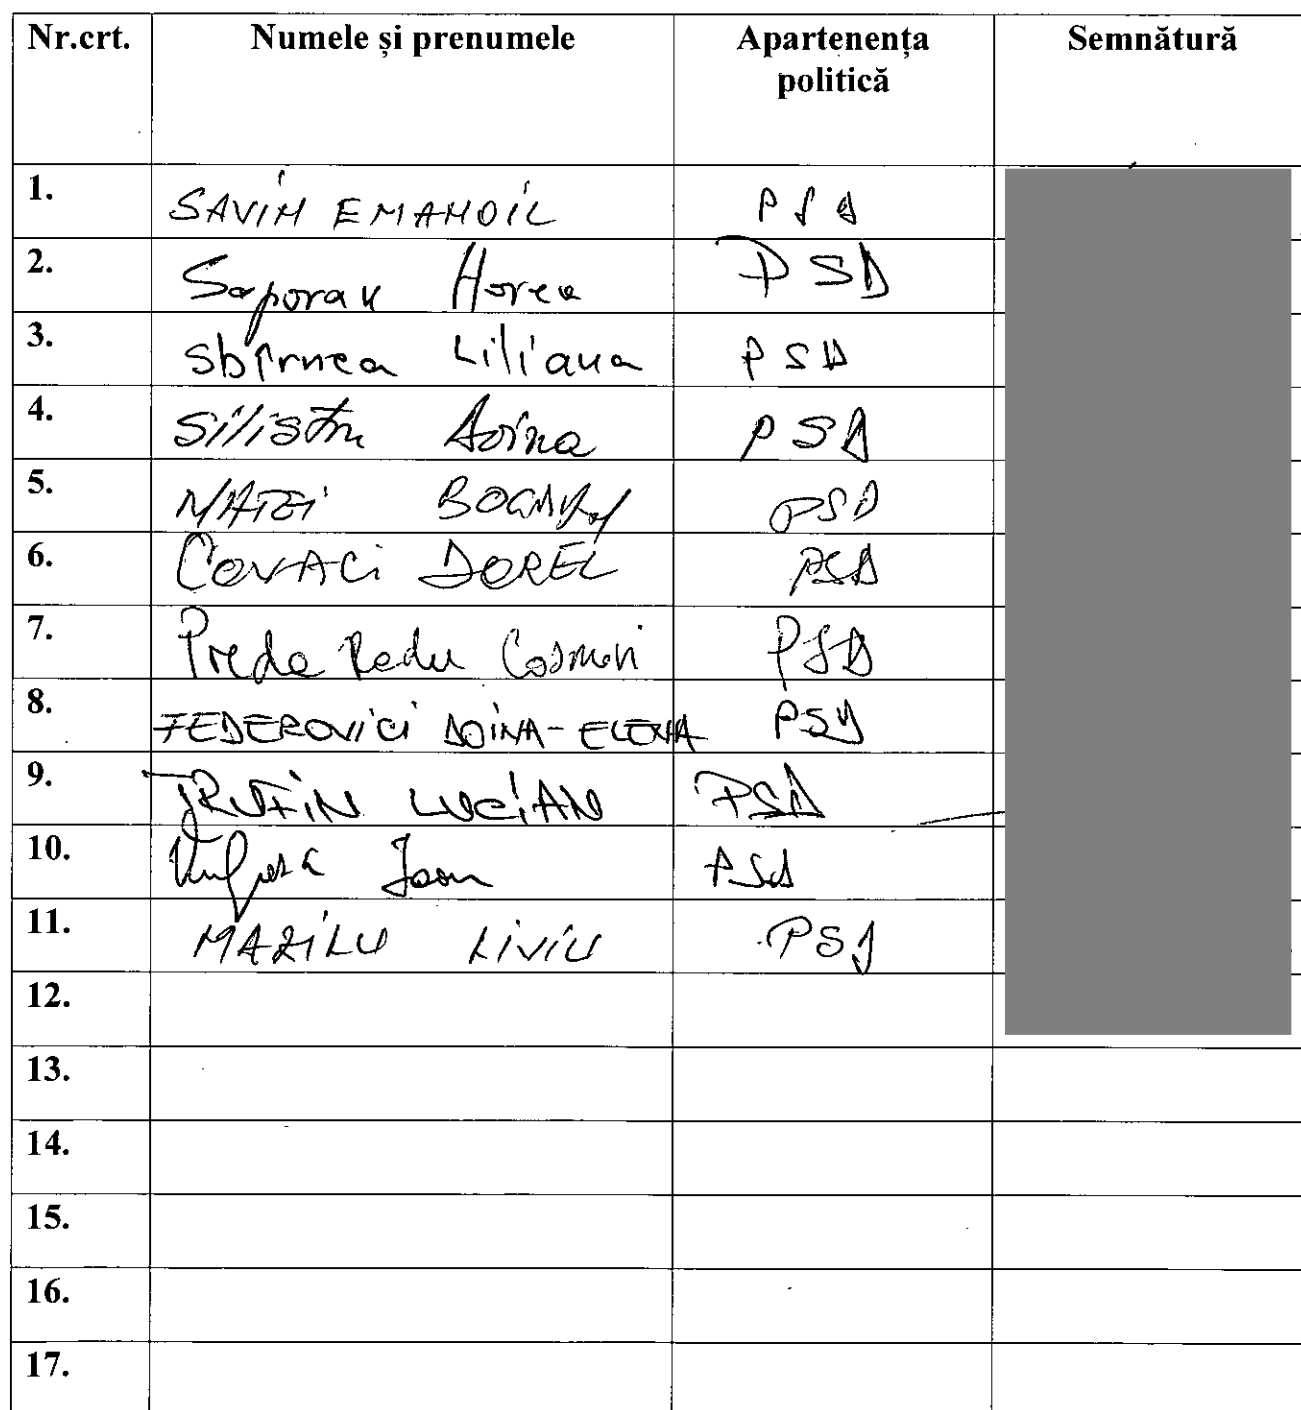 Nr.crt. Numele și prenumele Apartenența politică Semnătură
1. SAVIN EMANOIL PSD
2. Soporan Horea PSD
3. Sbîrnea Liliana PSD
4. Silistru Doina PSD
5. MATEI BOGDAN PSD
6. COVACI DOREL PSD
7. Preda Radu Cosmin PSD
8. FEDEROVICI DOINA-ELENA PSD
9. TRUFIN LUCIAN PSD
10. Vulpescu Ioan PSD
11. MAZILU LIVIU PSD
12.
13.
14.
15.
16.
17.